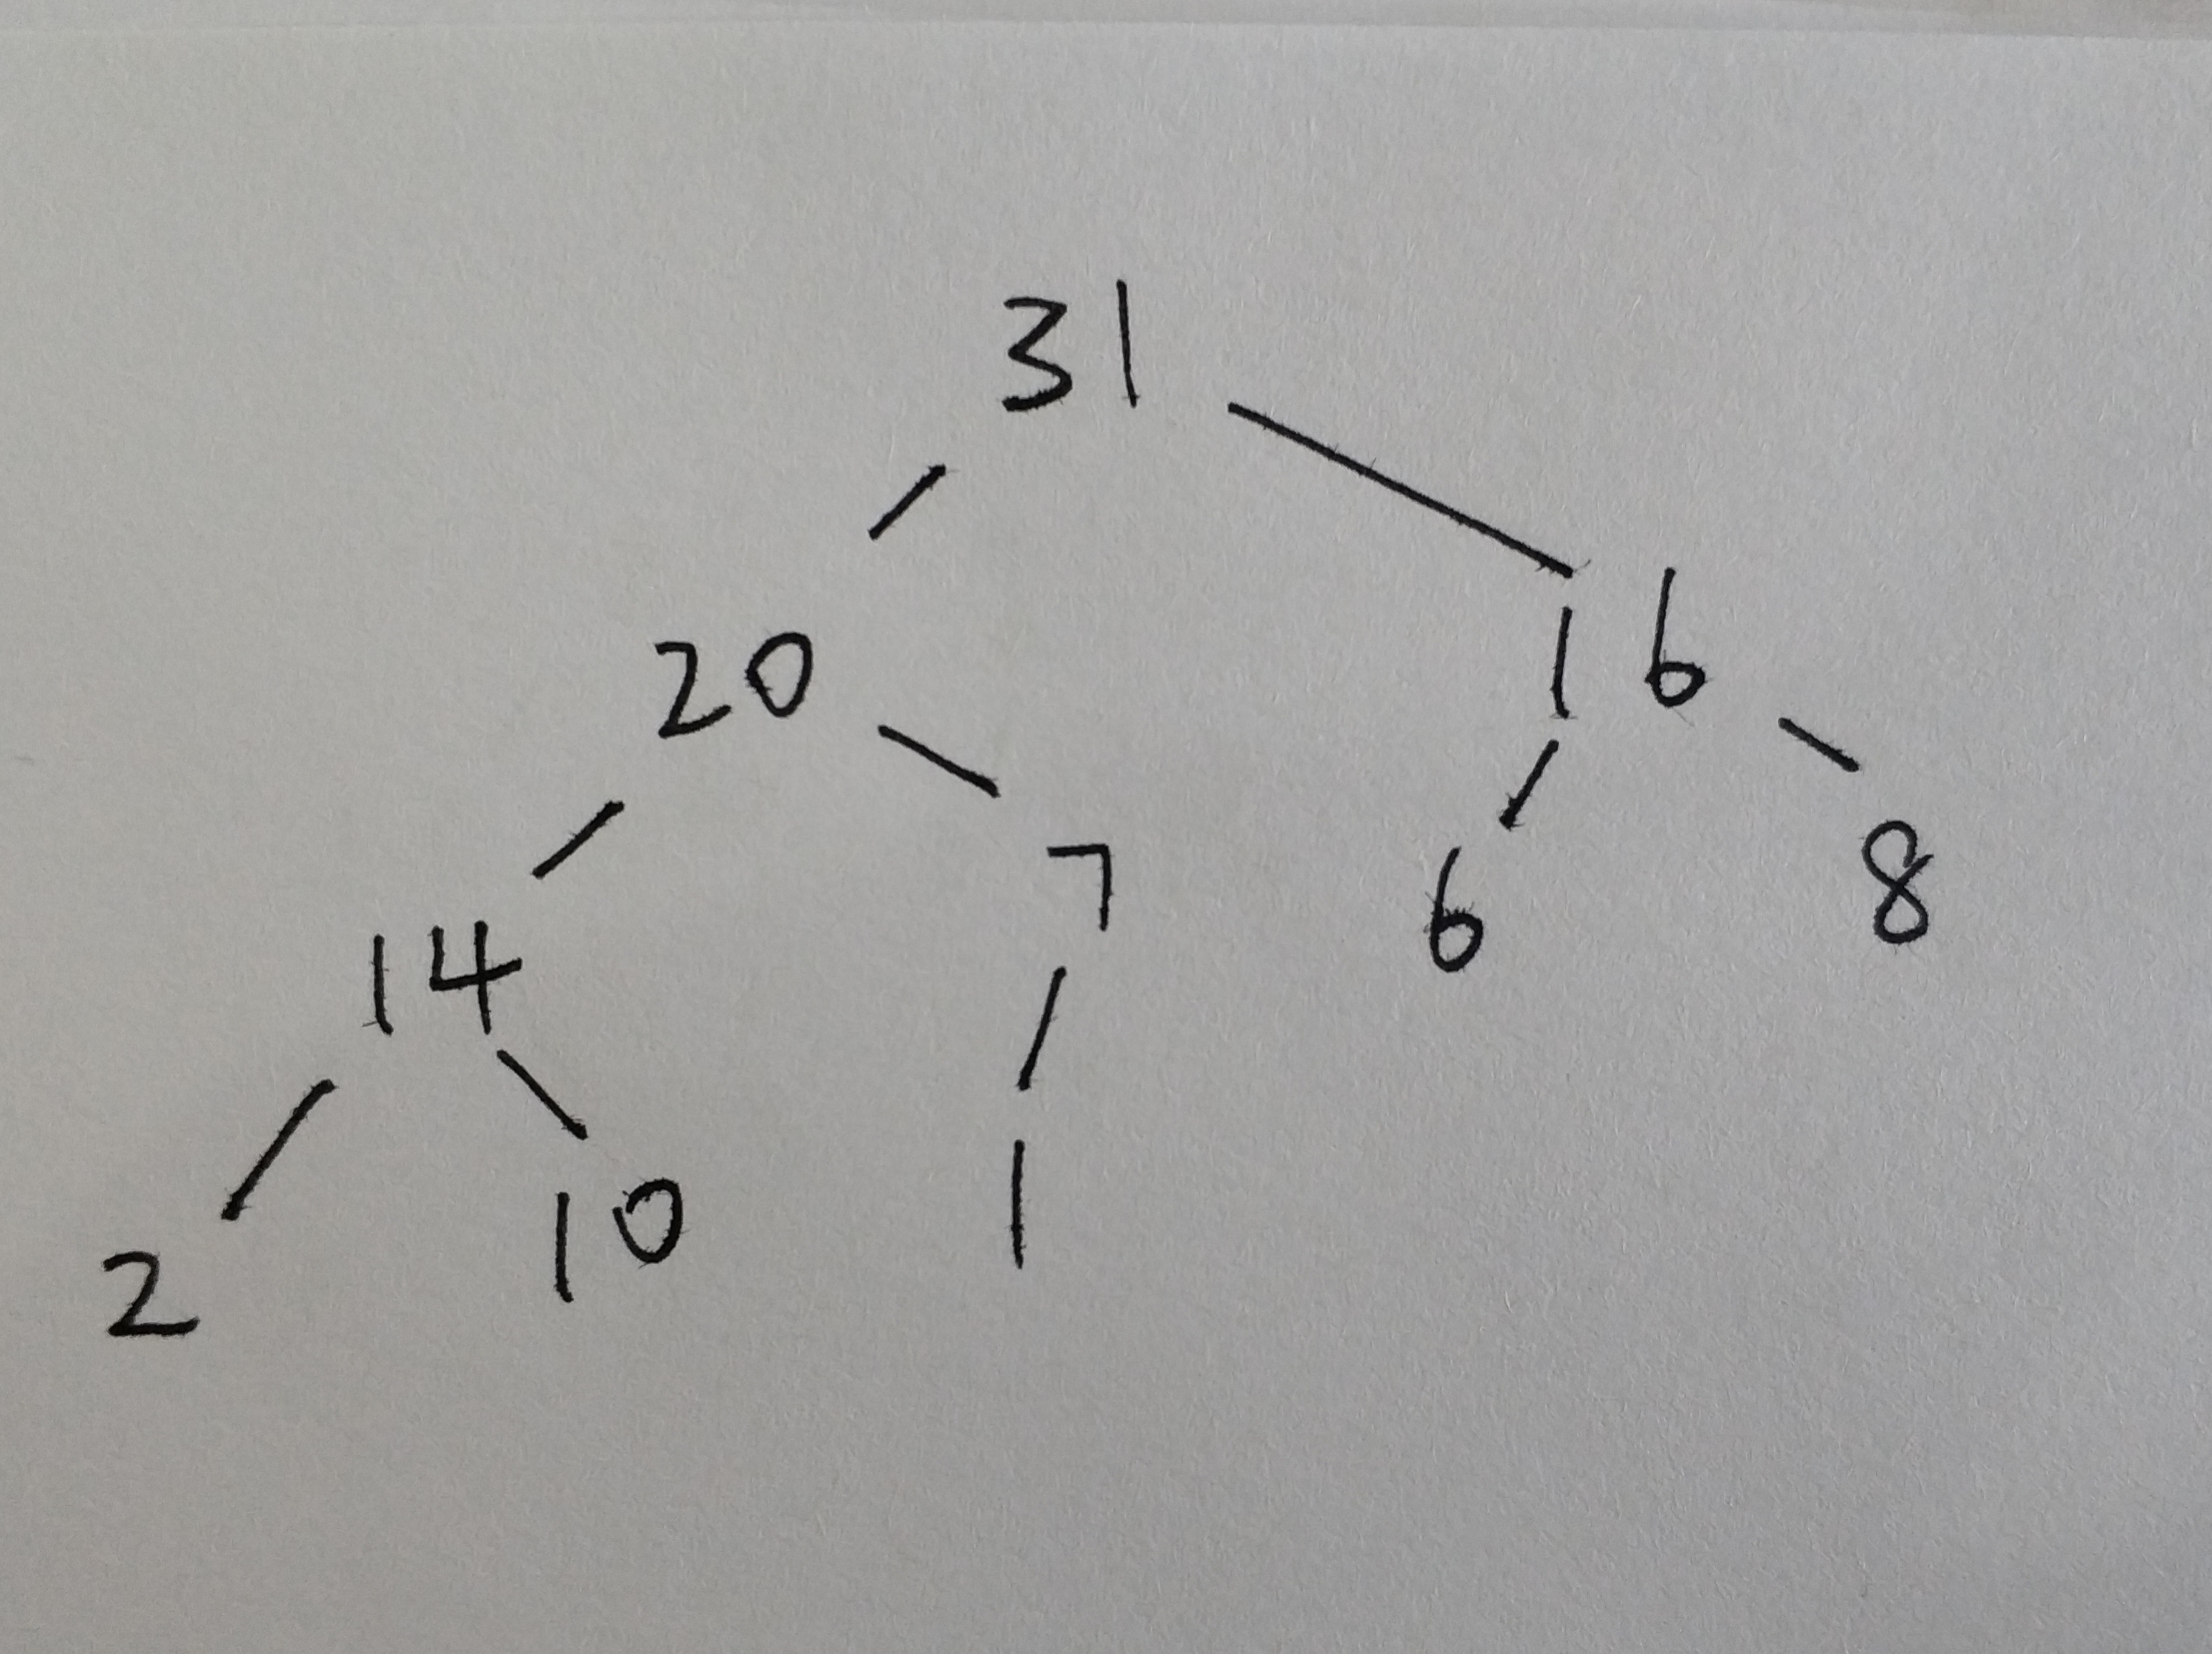 31
20 16
14 7 6 8
2 10 1